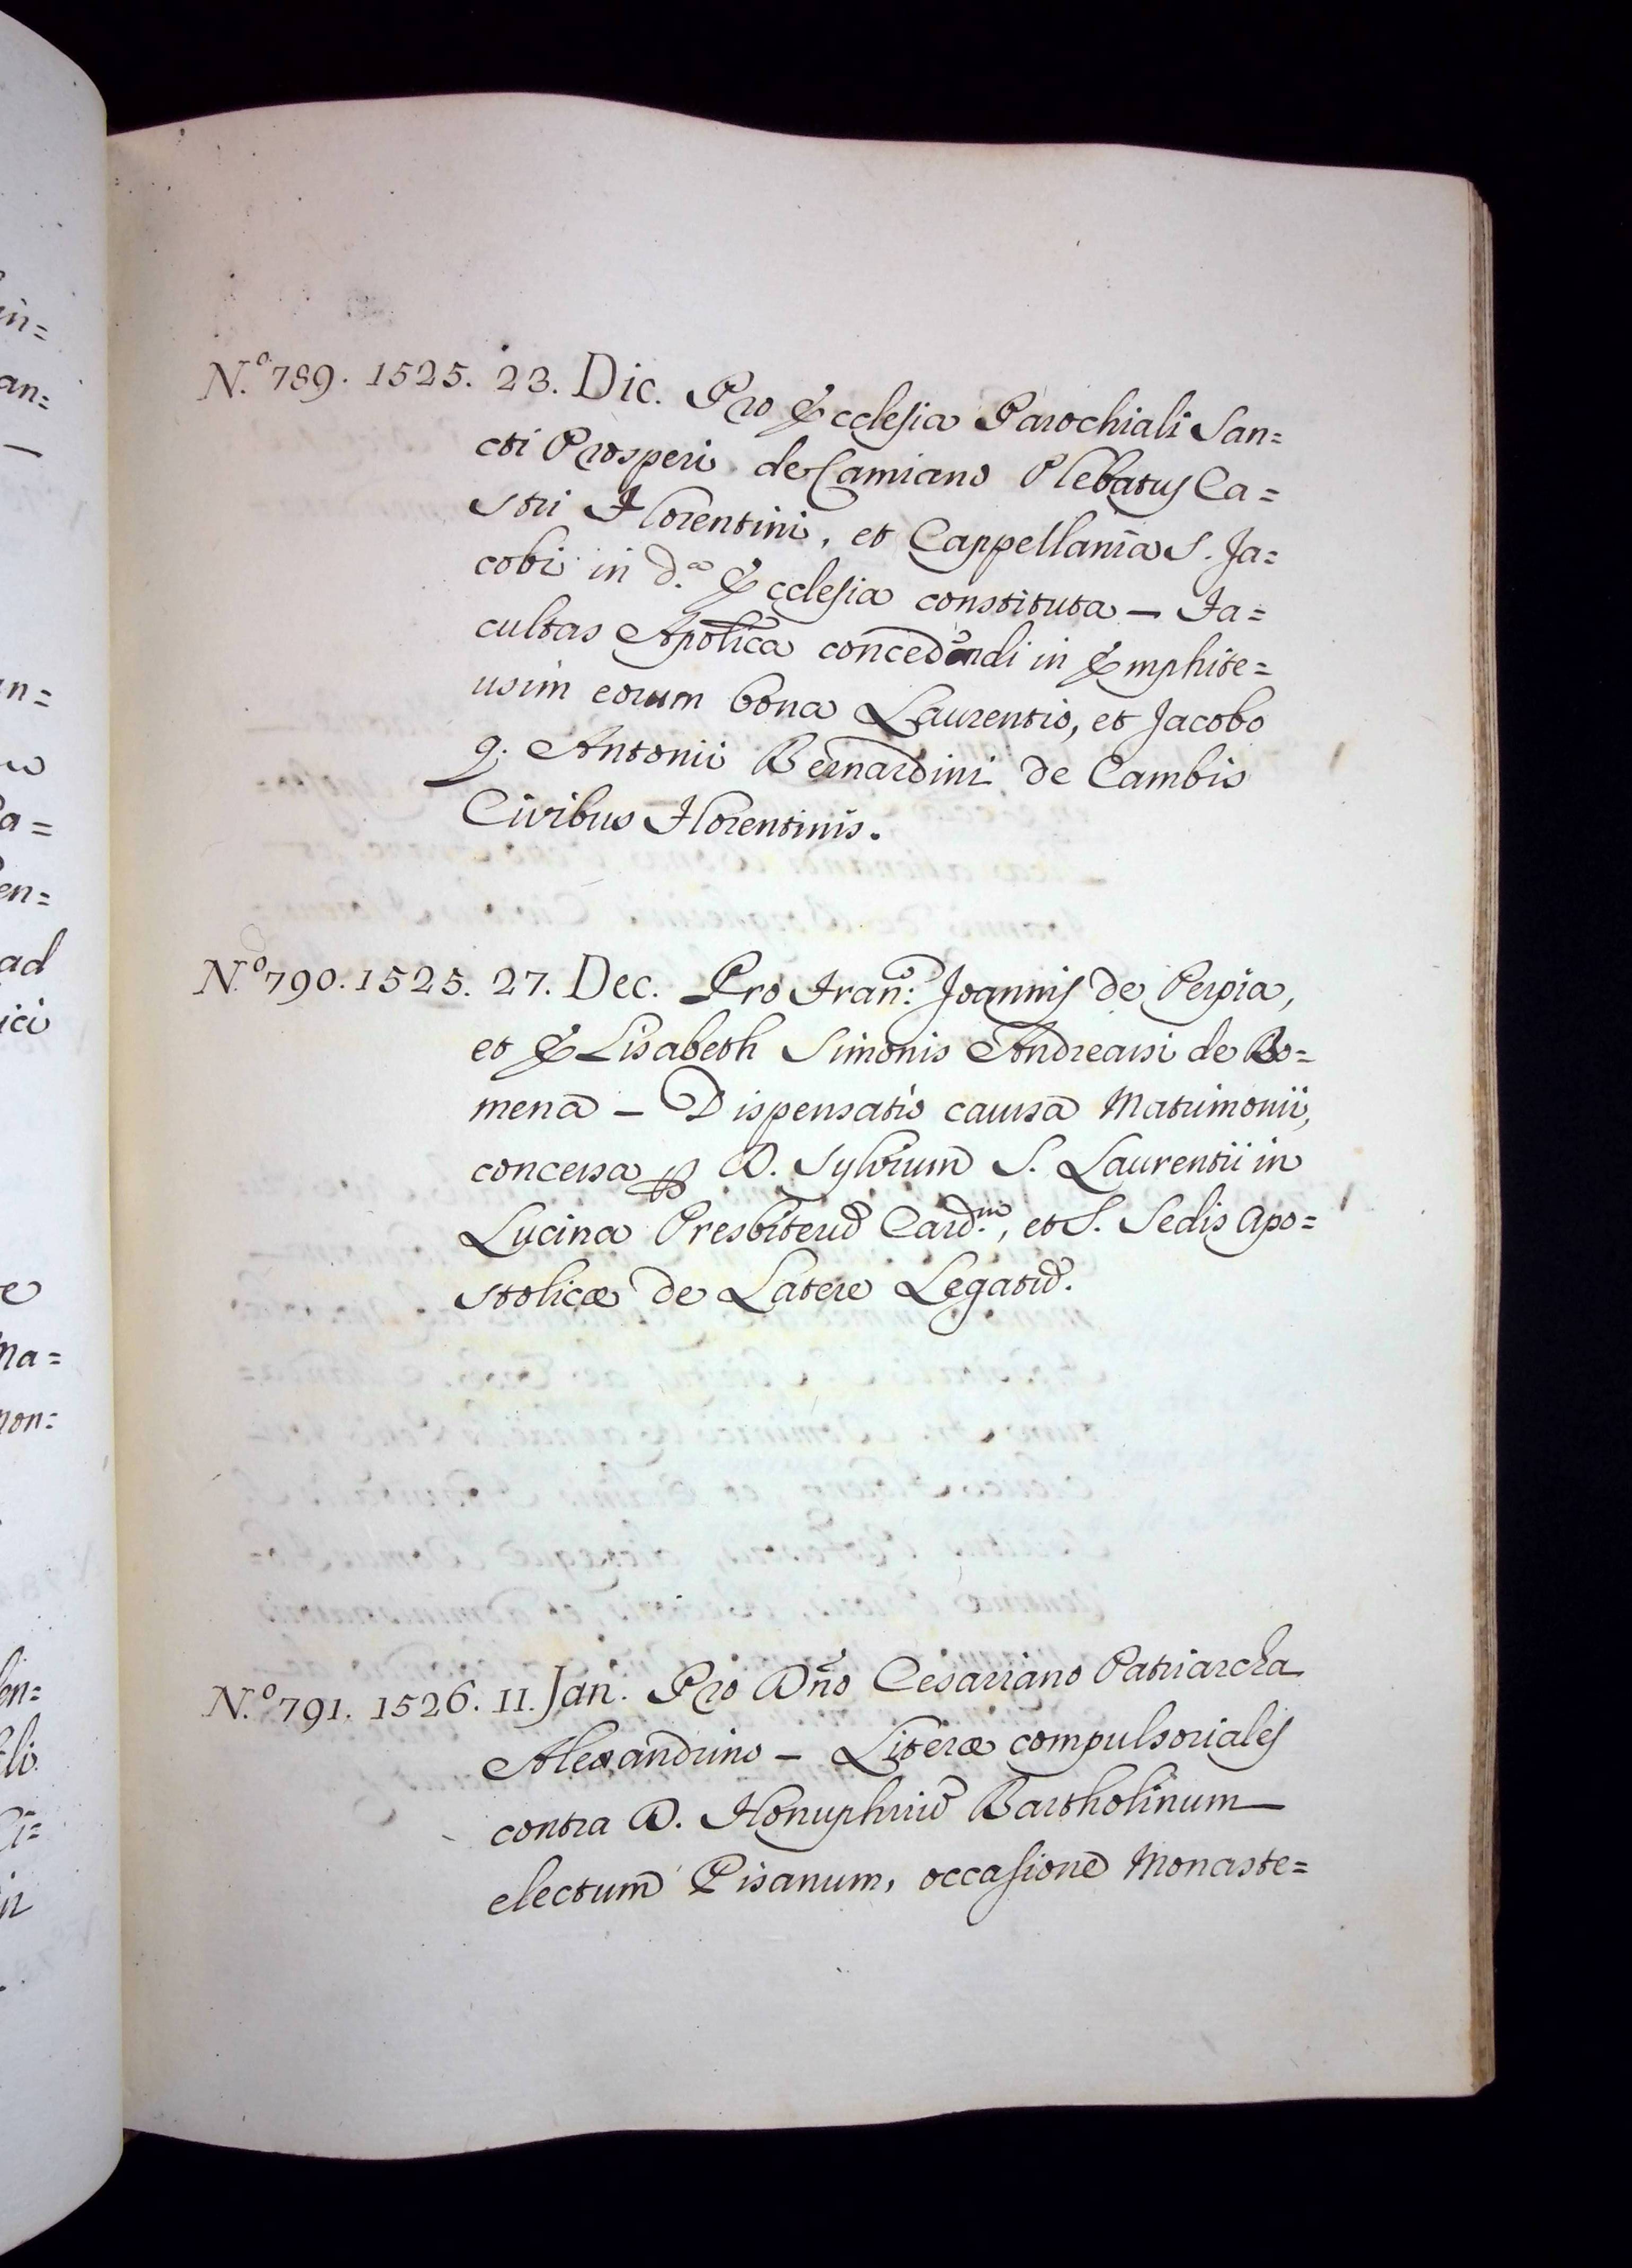 in=
an=
—
in=
a=
en=
ad
ici
e
ma=
non:
en=
li
N.º 789. 1525. 23. Dic. Pro Ecclesia Parochiali San=
cti Prosperi de Camiano Plebatus Ca=
stri Florentini, et Cappellania S. Ja=
cobi in d.ª Ecclesia constituta — Fa=
cultas Aplica concedendi in Emphite=
usim eorum bona Laurentio, et Jacobo
q. Antonii Bernardini de Cambis
Civibus Florentinis.
N.º 790. 1525. 27. Dec. Pro Fran: Joannis de
et Elisabeth Simonis Andreassi de Ro=
mena — Dispensatio causa Matrimonii,
concessa ꝑ D. Sylvium S. Laurentii in
Lucina Presbiterũ Card.m, et S. Sedis Apo=
stolicæ de Latere Legatũ.
N.º 791. 1526. 11. Jan. Pro Dño Cesariano Patriarcha
Alexandrino — Literæ compulsoriales
contra D. Honuphriũ Bartholinum
electum Pisanum, occasione Monaste=